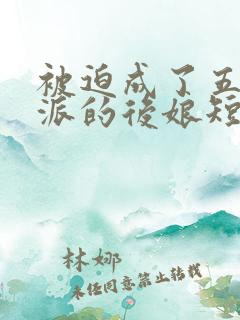 被迫成了五
派的後娘短
林娜
未经同意禁止转载